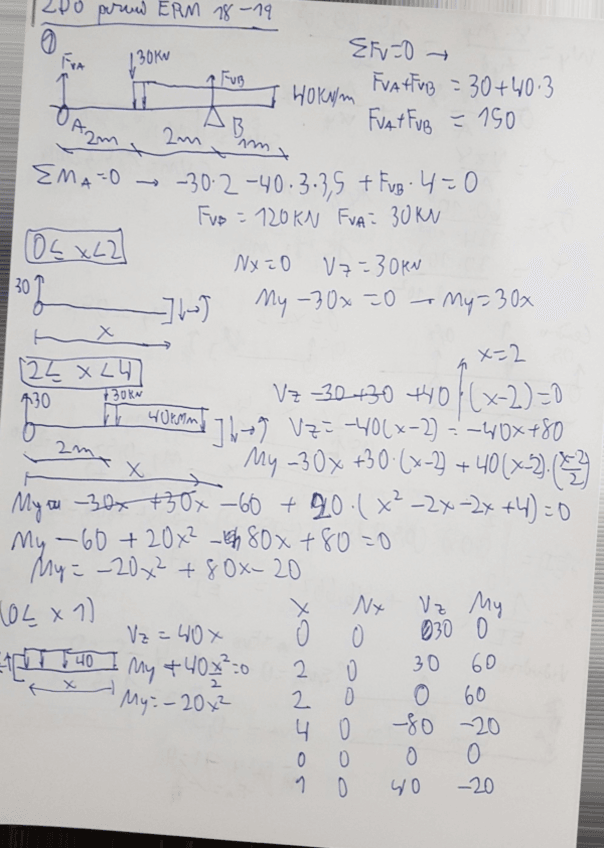 ERM 18-19
1
FVA 30KN FVB 40KN/m
A B
2m 2m 1m
ΣFV=0 →
FVA+FVB = 30+40·3
FVA+FVB = 150
ΣMA=0 → -30·2 -40·3·3,5 + FVB·4=0
FVB = 120KN FVA= 30KN
0≤ x<2
Nx=0 Vz=30KN
30
My -30x =0 → My=30x
x
2≤ x<4
x=2
30 30KN 40KN/m
Vz -30+30 +40 (x-2)=0
Vz= -40(x-2) = -40x+80
2m
x
My -30x +30·(x-2) + 40(x-2)·(x-2/2)
My -30x +30x -60 + 20·(x² -2x -2x +4)=0
My -60 + 20x² - 80x + 80 =0
My= -20x² + 80x - 20
(0≤ x 1)
Vz = 40x
40
My +40x²/2=0
x
My=-20x²
x Nx Vz My
0 0 30 0
2 0 30 60
2 0 0 60
4 0 -80 -20
0 0 0 0
1 0 40 -20